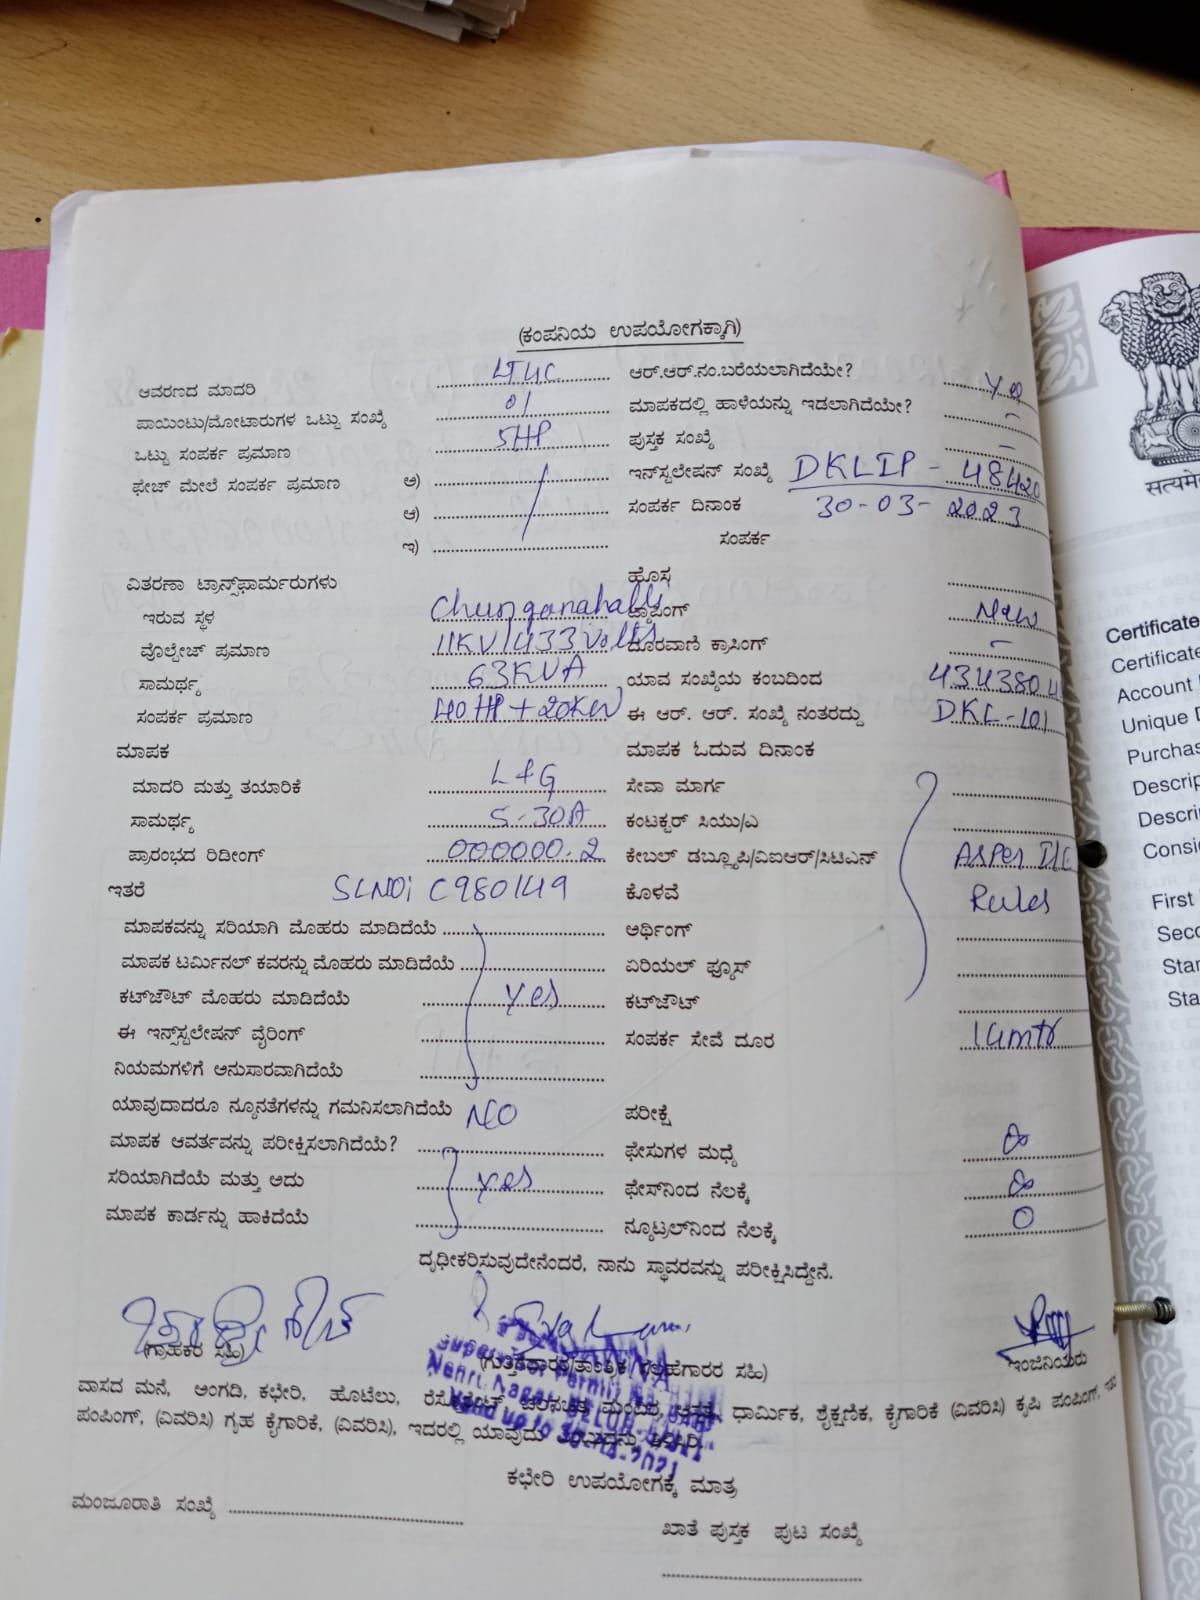 (ಕಂಪನಿಯ ಉಪಯೋಗಕ್ಕಾಗಿ)
ಆವರಣದ ಮಾದರಿ LT4C ಆರ್.ಆರ್.ನಂ.ಬರೆಯಲಾಗಿದೆಯೇ? yes
ಪಾಯಿಂಟು/ಮೋಟಾರುಗಳ ಒಟ್ಟು ಸಂಖ್ಯೆ 01 ಮಾಪಕದಲ್ಲಿ ಹಾಳೆಯನ್ನು ಇಡಲಾಗಿದೆಯೇ? -
ಒಟ್ಟು ಸಂಪರ್ಕ ಪ್ರಮಾಣ 5HP ಪುಸ್ತಕ ಸಂಖ್ಯೆ -
ಫೇಜ್ ಮೇಲೆ ಸಂಪರ್ಕ ಪ್ರಮಾಣ ಅ) ಇನ್‌ಸ್ಟಲೇಷನ್ ಸಂಖ್ಯೆ DKLIP - 48420
ಆ) ಸಂಪರ್ಕ ದಿನಾಂಕ 30-03-2023
ಇ) ಸಂಪರ್ಕ
ವಿತರಣಾ ಟ್ರಾನ್ಸ್‌ಫಾರ್ಮರುಗಳು ಹೊಸ
ಇರುವ ಸ್ಥಳ Chunganahally ಟ್ಯಾಪಿಂಗ್ New
ವೊಲ್ಟೇಜ್ ಪ್ರಮಾಣ 11KV/433 Volts ದೂರವಾಣಿ ಕ್ರಾಸಿಂಗ್ -
ಸಾಮರ್ಥ್ಯ 63KVA ಯಾವ ಸಂಖ್ಯೆಯ ಕಂಬದಿಂದ
ಸಂಪರ್ಕ ಪ್ರಮಾಣ 40HP + 20KW ಈ ಆರ್. ಆರ್. ಸಂಖ್ಯೆ ನಂತರದ್ದು DKL-101
ಮಾಪಕ ಮಾಪಕ ಓದುವ ದಿನಾಂಕ
ಮಾದರಿ ಮತ್ತು ತಯಾರಿಕೆ L&G ಸೇವಾ ಮಾರ್ಗ
ಸಾಮರ್ಥ್ಯ 5-30A ಕಂಟಕ್ಟರ್ ಸಿಯು/ಎ
ಪ್ರಾರಂಭದ ರಿಡೀಂಗ್ 000000.2 ಕೇಬಲ್ ಡಬ್ಲ್ಯೂಪಿ/ವಿಐಆರ್/ಸಿಟಿಎನ್ Asper
ಇತರೆ SLNO: C980149 ಕೊಳವೆ Rules
ಮಾಪಕವನ್ನು ಸರಿಯಾಗಿ ಮೊಹರು ಮಾಡಿದೆಯೆ ಅರ್ಥಿಂಗ್
ಮಾಪಕ ಟರ್ಮಿನಲ್ ಕವರನ್ನು ಮೊಹರು ಮಾಡಿದೆಯೆ ಏರಿಯಲ್ ಫ್ಯೂಸ್
ಕಟ್‌ಔಟ್ ಮೊಹರು ಮಾಡಿದೆಯೆ yes ಕಟ್‌ಔಟ್
ಈ ಇನ್ಸ್‌ಸ್ಟಲೇಷನ್ ವೈರಿಂಗ್ ಸಂಪರ್ಕ ಸೇವೆ ದೂರ 14mtr
ನಿಯಮಗಳಿಗೆ ಅನುಸಾರವಾಗಿದೆಯೆ
ಯಾವುದಾದರೂ ನ್ಯೂನತೆಗಳನ್ನು ಗಮನಿಸಲಾಗಿದೆಯೆ NO ಪರೀಕ್ಷೆ
ಮಾಪಕ ಆವರ್ತವನ್ನು ಪರೀಕ್ಷಿಸಲಾಗಿದೆಯೆ? ಫೇಸುಗಳ ಮಧ್ಯೆ ∞
ಸರಿಯಾಗಿದೆಯೆ ಮತ್ತು ಅದು yes ಫೇಸ್‌ನಿಂದ ನೆಲಕ್ಕೆ ∞
ಮಾಪಕ ಕಾರ್ಡನ್ನು ಹಾಕಿದೆಯೆ ನ್ಯೂಟ್ರಲ್‌ನಿಂದ ನೆಲಕ್ಕೆ 0
ದೃಢೀಕರಿಸುವುದೇನೆಂದರೆ, ನಾನು ಸ್ಥಾವರವನ್ನು ಪರೀಕ್ಷಿಸಿದ್ದೇನೆ.
(ಗ್ರಾಹಕರ ಸಹಿ) (ಗುತ್ತಿಗೆದಾರರ/ತಾಂತ್ರಿಕ ಸಲಹೆಗಾರರ ಸಹಿ) ಇಂಜಿನಿಯರು
ವಾಸದ ಮನೆ, ಅಂಗಡಿ, ಕಛೇರಿ, ಹೊಟೆಲು, ಧಾರ್ಮಿಕ, ಶೈಕ್ಷಣಿಕ, ಕೈಗಾರಿಕೆ (ವಿವರಿಸಿ) ಕೃಷಿ ಪಂಪಿಂಗ್,
ಪಂಪಿಂಗ್, (ವಿವರಿಸಿ) ಗೃಹ ಕೈಗಾರಿಕೆ, (ವಿವರಿಸಿ), ಇದರಲ್ಲಿ ಯಾವುದು
ಕಛೇರಿ ಉಪಯೋಗಕ್ಕೆ ಮಾತ್ರ
ಮಂಜೂರಾತಿ ಸಂಖ್ಯೆ
ಖಾತೆ ಪುಸ್ತಕ ಪುಟ ಸಂಖ್ಯೆ
Certificate
Certificate
Account
Unique
First